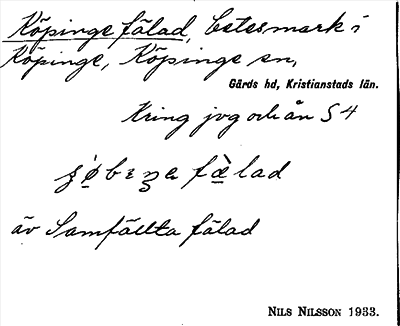 Köpinge fälad, betesmark i
Köpinge, Köpinge sn,
Gärds hd, Kristianstads län.
Kring jvg och ån S 4
fälad
äv Samfällta fälad
NILS NILSSON 1933.